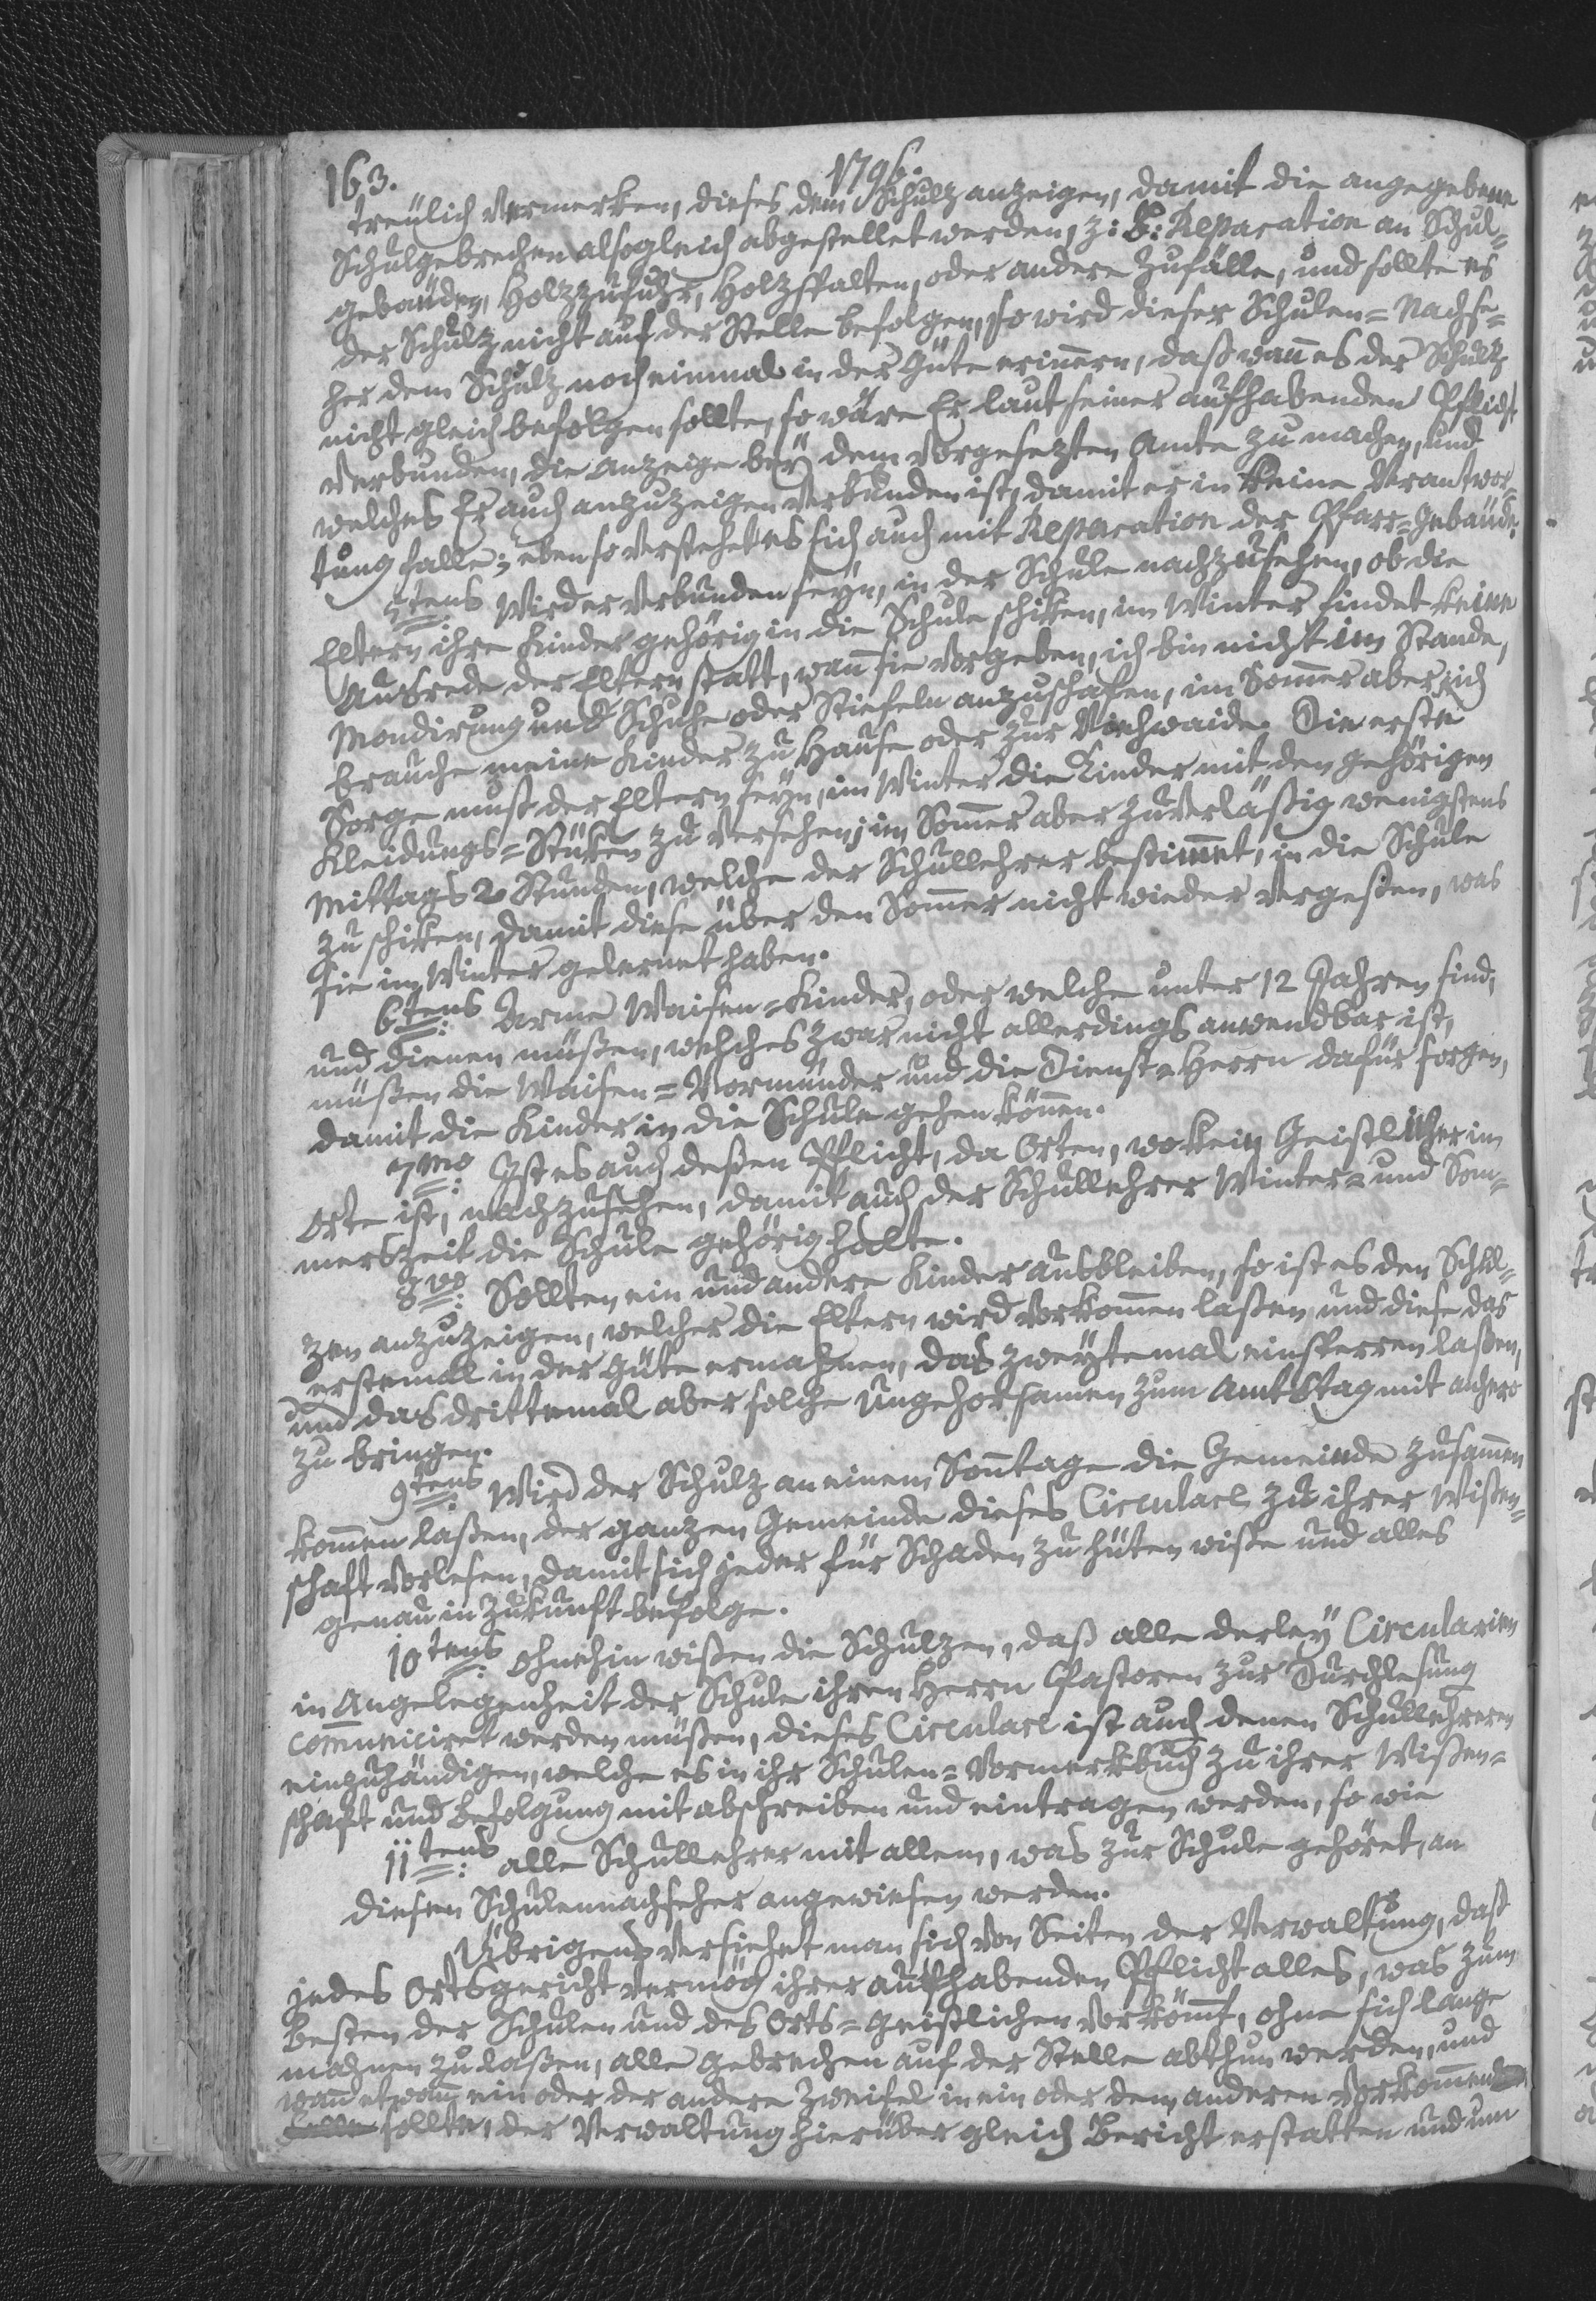 163.
1796.
treulich vermerken, dieses dem Schulz anzeigen, damit die angegebene
Schulgebrechen alsogleich abgestellet werden, z: B: Reparation an Schul=
gebäuden, Holzzufuhr, Holzspalten, oder andere Zufälle, und sollte es
der Schulz nicht auf der Stelle befolgen, so wird dieser Schulen=Nachse=
her dem Schulz noch einmal in der Güte erinern, daß wan es der Schulz
nicht gleich befolgen sollte, so wäre Er laut seiner aufhabenden Pflicht
verbunden, die Anzeige bey dem Vorgesezten Amte zu machen, und
welches Er auch anzuzeigen verbunden ist, damit er in keine Verantwor=
tung falle; ebenso verstehet es sich auch mit Reparation der Pfarr=Gebäude.
5tens Wird er verbunden seyn, in der Schule nachzusehen, ob die
Eltern ihre Kinder gehörig in die Schule schiken, im Winter findet keine
Ausrede der Eltern statt, wan sie vorgeben, ich bin nicht im Stande,
Mondirung und Schuhe oder Stiefeln anzuschafen, im Somer aber ich
brauche meine Kinder zu Hause oder zur Viehwaide. Die erste
Sorge muß der Eltern seyn, im Winter die Kinder mit den gehörigen
Kleidungs=Stüken zu versehen; im Somer aber zuverläßig wenigstens
Mittags 2 Stunden, welche der Schullehrer bestimet, in die Schule
zu schiken, damit diese über den Somer nicht wieder vergeßen, was
sie im Winter gelernet haben.
6tens: Arme Waisen=Kinder, oder welche unter 12 Jahren sind,
und dienen müßen, welches zwar nicht allerdings anwendbar ist,
müßen die Waisen=Vormünder und die Dienst=Herrn dafür sorgen,
damit die Kinder in die Schule gehen könen.
7mo: Ist es auch deßen Pflicht, da Orten, wo kein Geistlicher im
Orte ist, nachzusehen, damit auch der Schullehrer Winter= und Som=
merszeit die Schule gehörig halte.
8vo: Sollten ein und andere Kinder ausbleiben, so ist es den Schul=
zen anzuzeigen, welcher die Eltern wird vorkomen laßen, und diese das
erstemal in der Güte ermahnen, das zweytemal einsperren laßen,
und das drittemal aber solche Ungehorsamen zum Amtstag mit anhero
zu bringen.
9tens: Wird der Schulz an einem Sontage die Gemeinde zusamen
komen laßen, der ganzen Gemeinde dieses Circulare zu ihrer Wißen=
schaft vorlesen, damit sich jeder für Schaden zu hüten wiße und alles
genau in Zukunft befolge.
10tens: Ohnehin wißen die Schulzen, daß alle derley Circularien
in Angelegenheit der Schule ihren Herrn Pastoren zur Durchlesung
comuniciret werden müßen, dieses Circulare ist auch denen Schullehreren
einzuhändigen, welche es in ihr Schulen=Vormerkbuch zu ihrer Wißen=
schaft und Befolgung mit abschreiben und eintragen werden, so wie
11tens: alle Schullehrer mit allem, was zur Schule gehöret, an
diesen Schulennachseher angewiesen werden.
Übrigens versiehet man sich von Seiten der Verwaltung, daß
jedes Ortsgericht vermög ihrer aufhabenden Pflicht alles, was zum
Besten der Schulen und des Orts=Geistlichen vorkömt, ohne sich lange
mahnen zu laßen, alle Gebrechen auf der Stelle abthun werden, und
wan etwan ein oder der andere Zweifel in ein oder dem anderen vorkomen
sollte, der Verwaltung hierüber gleich Bericht erstatten und um